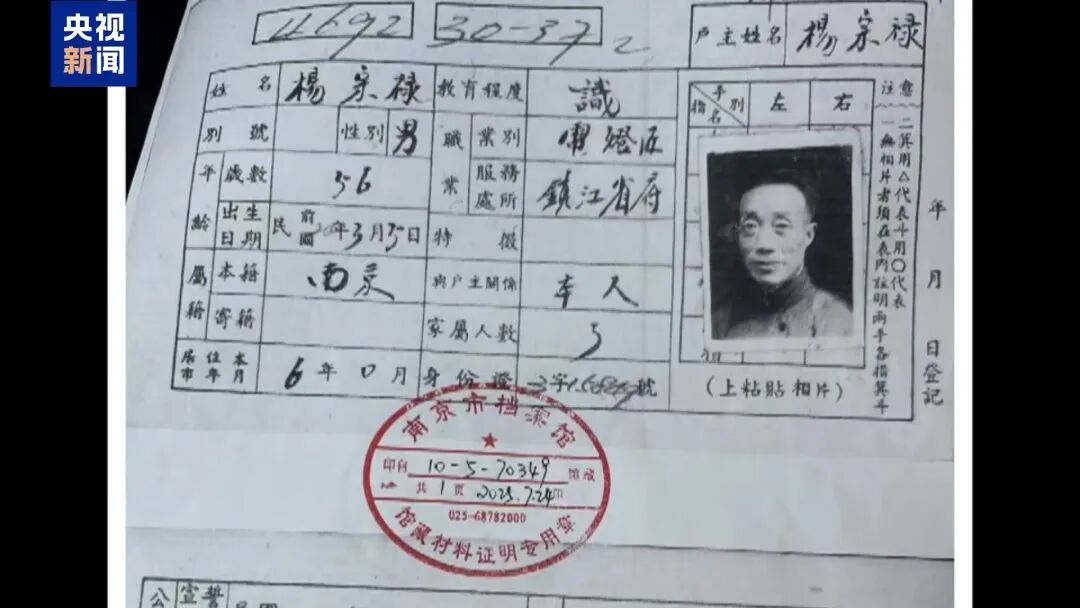 央视
新闻
4692 30-37 2
户主姓名 楊宗禄
姓名 楊宗禄 教育程度 識
別號 性別 男 職業 業別
年齡 歲數 56 服務處所 鎮江省府
出生日期 民前國 年3月 日 特徵
屬籍 本籍 南京 與戶主關係 本人
寄籍 家屬人數 5
居住本市年月 6年0月 身份證 字 號
指名 手別 左 右
注意
一無相片者須在表內註明兩手各指箕斗
二箕用△代表斗用〇代表
年 月 日登記
(上粘貼相片)
南京市档案馆
印自 10-5-70349 馆藏
共1页 2025.7.24印
025-68782000
馆藏材料证明专用章
公 宣誓